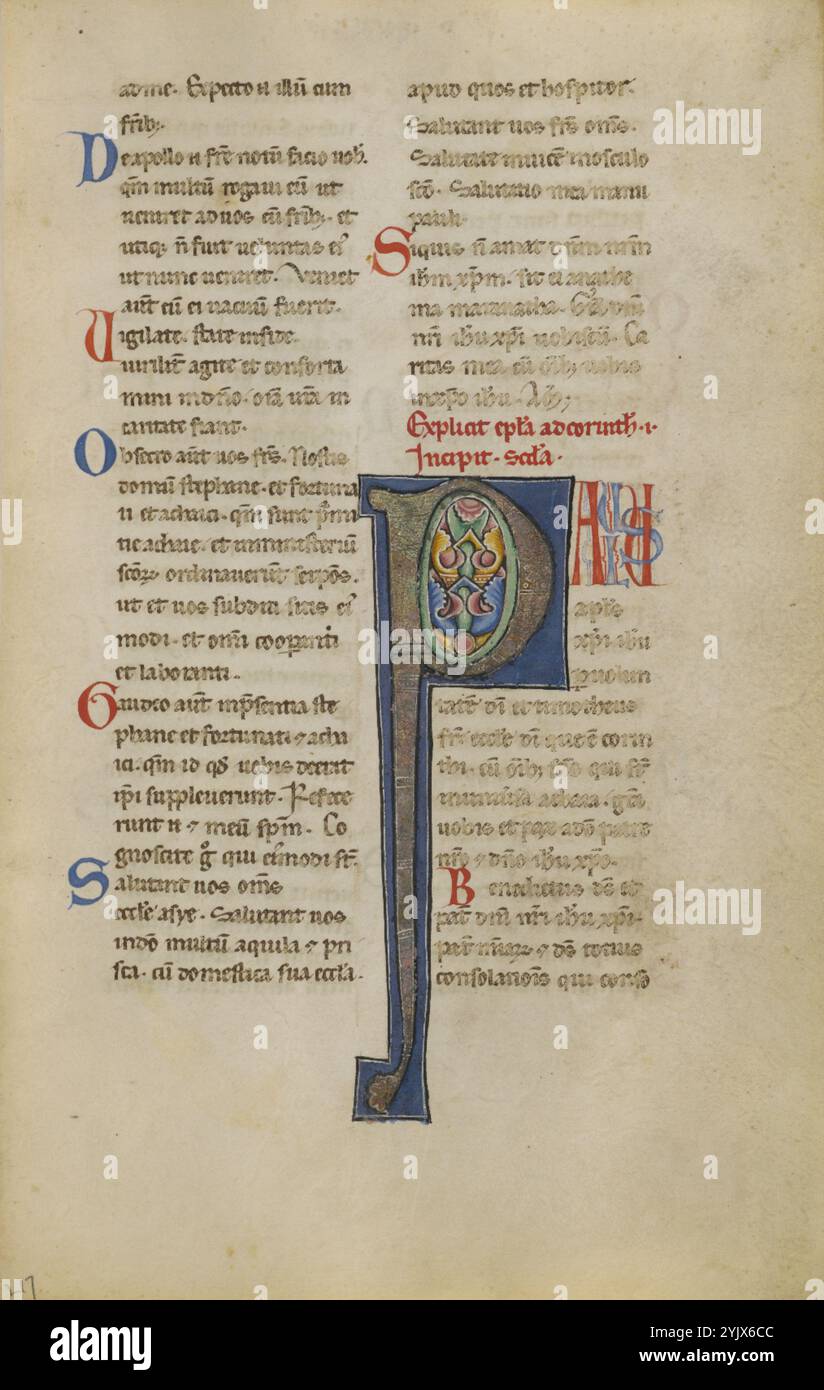 ad me. Expecto n̄ illū cum
frīb;.
De apollo n̄ frē notū facio uob̄.
qm̄ multū rogaui eū ut
ueniret ad uos cū frīb;. et
utiq; n̄ fuit uoluntas ei᾽
ut nunc ueniret. Veniet
aūt cū ei uacuū fuerit.
Uigilate. state in fide.
uirilit̄ agite et conforta
mini in dn̄o. oīa ur̄a in
caritate fiant.
Obsecro aūt uos fr̄s. Nostis
domū stephane. et fortuna
ti et achaici. qm̄ sunt p̄mi
tie achaie. et in ministeriū
sc̄oꝝ ordinauerūt se ipōs.
ut et uos subditi sitis ei᾽
modi. et omī cooperanti
et laboranti.
Gaudeo aūt in p̄sentia ste
phane et fortunati ⁊ acha
ici. qm̄ id qđ uobis deerat
ip̄i suppleuerunt. Refece
runt n̄ ⁊ meū sp̄m. Co
gnoscite ḡ qui ei᾽modi st̄.
Salutant uos om̄s
eccl̄e asye. Salutant uos
in dn̄o multū aquila ⁊ pri
sca. cū domestica sua eccl̄a.
apud quos et hospitor.
Salutant uos fr̄s om̄s.
Salutate inuicē in osculo
sc̄o. Salutatio mea manu
pauli.
Siquis n̄ amat dn̄m nr̄m
ihm̄ xp̄m. sit ei anathe
ma maranatha. Gr̄a dn̄i
nr̄i ihu xp̄i uobiscū. Ca
ritas mea cū oīb; uobis
in xp̄o ihu. Am̄;
Explicit epl̄a ad corinth̄. i.
Incipit. sc̄da.
PAULUS
apl̄s
xp̄i ihu
p uolun
tatē dī et timotheus
fr̄. eccl̄e dī que ē corin
thi. cū oīb; sc̄is qui st̄
in uniu̅sa achaia. gr̄a
uobis et pax a dō patre
nr̄o ⁊ dn̄o ihu xp̄o.
Benedictus ds̄ et
pat̄ dn̄i nr̄i ihu xp̄i.
pat̄ mīaꝝ ⁊ ds̄ totius
consolationīs qui conso
alamy
a
alamy
Image ID: 2YJX6CC
www.alamy.com